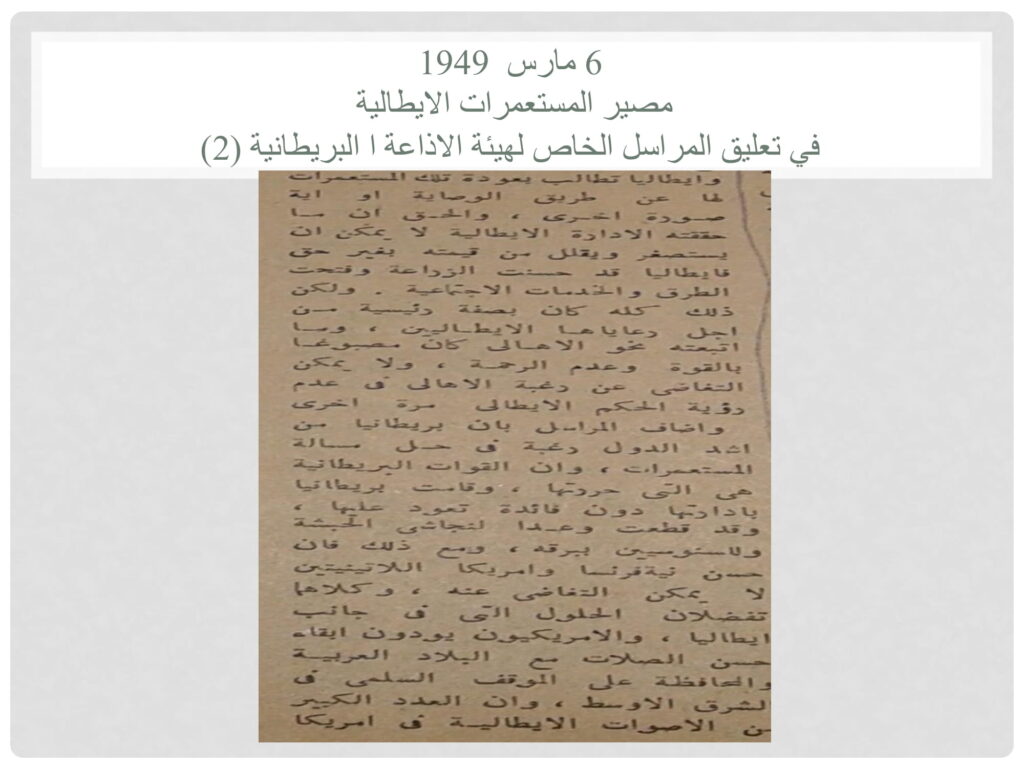 6 مارس 1949
مصير المستعمرات الايطالية
في تعليق المراسل الخاص لهيئة الاذاعة ا البريطانية (2)
وايطاليا تطالب بعودة تلك المستعمرات
لها عن طريق الوصاية او اية
صورة اخرى ، والحق ان ما
حققته الادارة الايطالية لا يمكن ان
يستصغر ويقلل من قيمته بغير حق
فايطاليا قد حسنت الزراعة وفتحت
الطرق والخدمات الاجتماعية . ولكن
ذلك كله كان بصفة رئيسية من
اجل رعاياها الايطاليين ، وما
اتبعته نحو الاهالى كان مصبوغا
بالقوة وعدم الرحمة ، ولا يمكن
التغاضى عن رغبة الاهالى فى عدم
رؤية الحكم الايطالى مرة اخرى
واضاف المراسل بان بريطانيا من
اشد الدول رغبة فى حل مسالة
المستعمرات ، وان القوات البريطانية
هى التى حررتها ، وقامت بريطانيا
بادارتها دون فائدة تعود عليها ،
وقد قطعت وعدا لنجاشى الحبشة
وللسنوسيين ببرقه ، ومع ذلك فان
حسن نية فرنسا وامريكا اللاتينيتين
لا يمكن التغاضى عنه ، وكلاهما
تفضلان الحلول التى فى جانب
ايطاليا ، والامريكيون يودون ابقاء
حسن الصلات مع البلاد العربية
والمحافظة على الموقف السلمى فى
لشرق الاوسط ، وان العدد الكبير
من الاصوات الايطالية فى امريكا